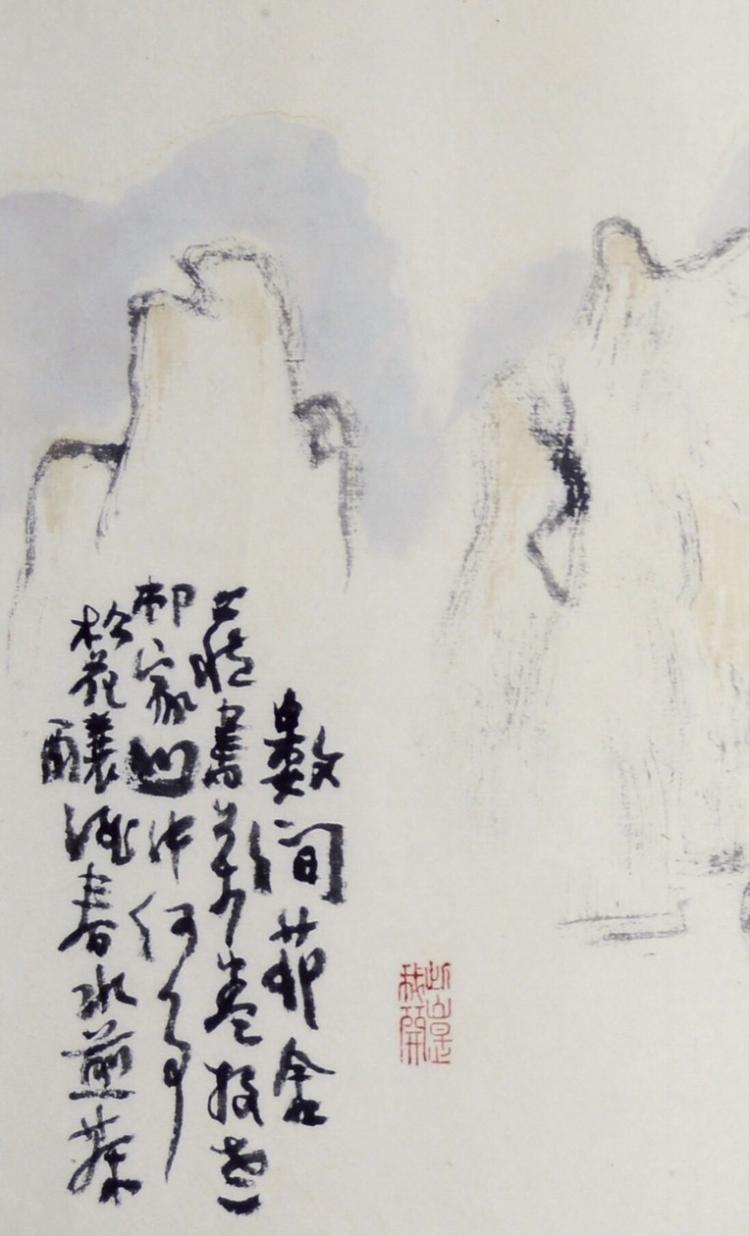 數間茆舍
藏書萬卷投老
邨家山中何事
松花釀酒春水煎茶
此山是
我開